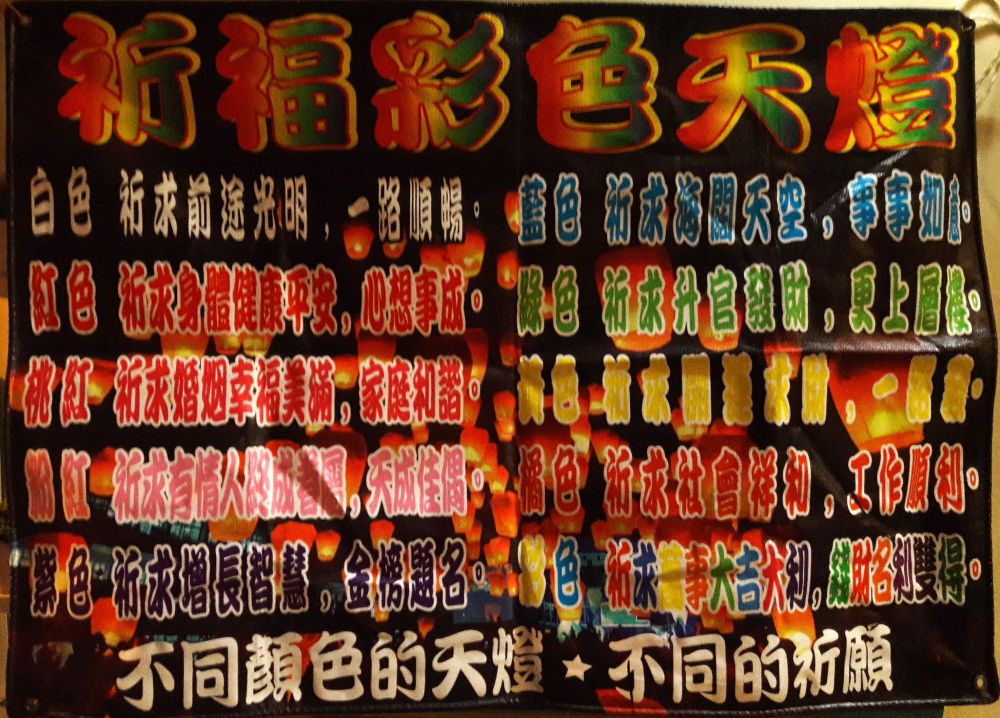 祈福彩色天燈
白色 祈求前途光明，一路順暢。
紅色 祈求身體健康平安，心想事成。
桃紅 祈求婚姻幸福美滿，家庭和諧。
粉紅 祈求有情人終成眷屬，天成佳偶。
紫色 祈求增長智慧，金榜題名。
藍色 祈求海闊天空，事事如意。
綠色 祈求升官發財，更上層樓。
黃色 祈求開運求財，一路發。
橘色 祈求社會祥和，工作順利。
彩色 祈求萬事大吉大利，錢財名利雙得。
不同顏色的天燈★不同的祈願